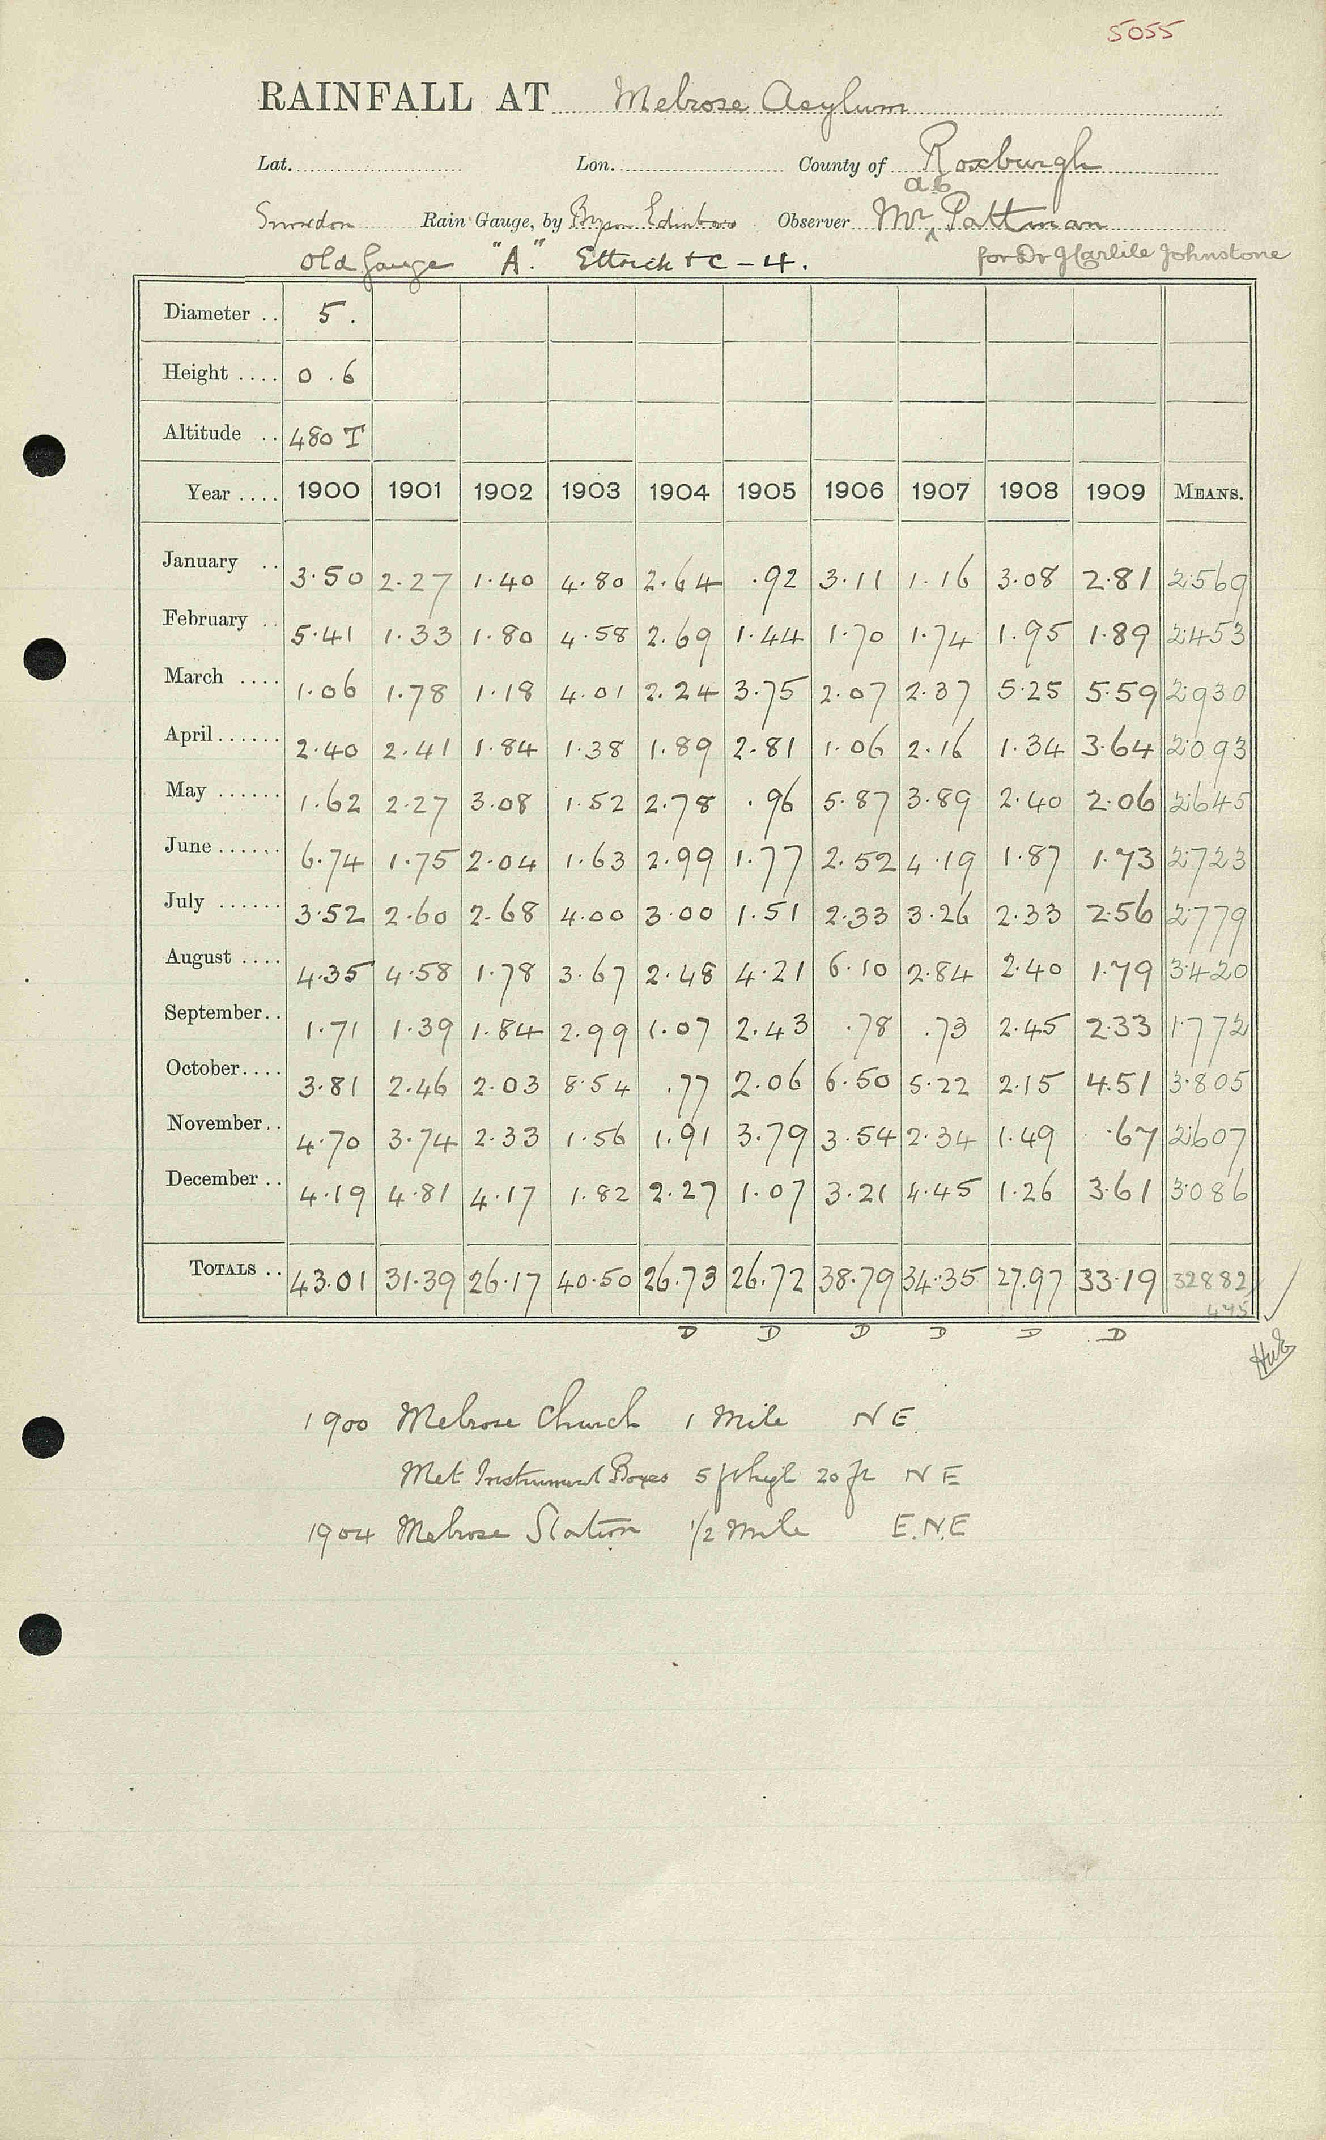 5055
RAINFALL AT Melrose Asylum
Lat. Lon. County of Roxburgh
Snowdon Rain Gauge, by Bryson Edinboro Observer Mr ^ A.B. Pattman
Old Gauge "A." Ettrick & C - 4. for Dr J Carlile Johnstone
Diameter .. 5.
Height .... 0.6
Altitude .. 480 T
Year .... 1900 1901 1902 1903 1904 1905 1906 1907 1908 1909 MEANS.
January .. 3.50 2.27 1.40 4.80 2.64 .92 3.11 1.16 3.08 2.81 2.569
February .. 5.41 1.33 1.80 4.58 2.69 1.44 1.70 1.74 1.95 1.89 2.453
March .... 1.06 1.78 1.18 4.01 2.24 3.75 2.07 2.37 5.25 5.59 2.930
April...... 2.40 2.41 1.84 1.38 1.89 2.81 1.06 2.16 1.34 3.64 2.093
May ...... 1.62 2.27 3.08 1.52 2.78 .96 5.87 3.89 2.40 2.06 2.645
June ...... 6.74 1.75 2.04 1.63 2.99 1.77 2.52 4.19 1.87 1.73 2.723
July ...... 3.52 2.60 2.68 4.00 3.00 1.51 2.33 3.26 2.33 2.56 2.779
August .... 4.35 4.58 1.78 3.67 2.48 4.21 6.10 2.84 2.40 1.79 3.420
September.. 1.71 1.39 1.84 2.99 1.07 2.43 .78 .73 2.45 2.33 1.772
October.... 3.81 2.46 2.03 8.54 .77 2.06 6.50 5.22 2.15 4.51 3.805
November.. 4.70 3.74 2.33 1.56 1.91 3.79 3.54 2.34 1.49 .67 2.607
December .. 4.19 4.81 4.17 1.82 2.27 1.07 3.21 4.45 1.26 3.61 3.086
TOTALS .. 43.01 31.39 26.17 40.50 26.73 26.72 38.79 34.35 27.97 33.19 32882
D D D D D D
1900 Melrose Church 1 Mile NE
Met Instrument Boxes 5 ft high 20 ft NE
1904 Melrose Station 1/2 Mile E.N.E